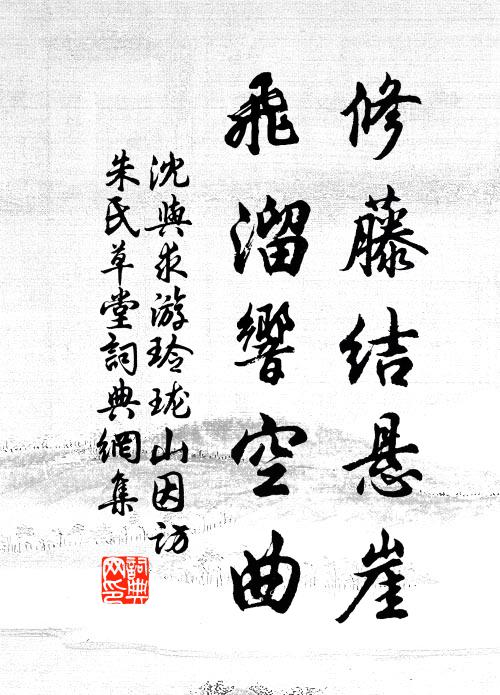 修藤结悬崖
飛溜響空曲
沈與求游玲珑山因訪
朱氏草堂詞典網集
詞典网印